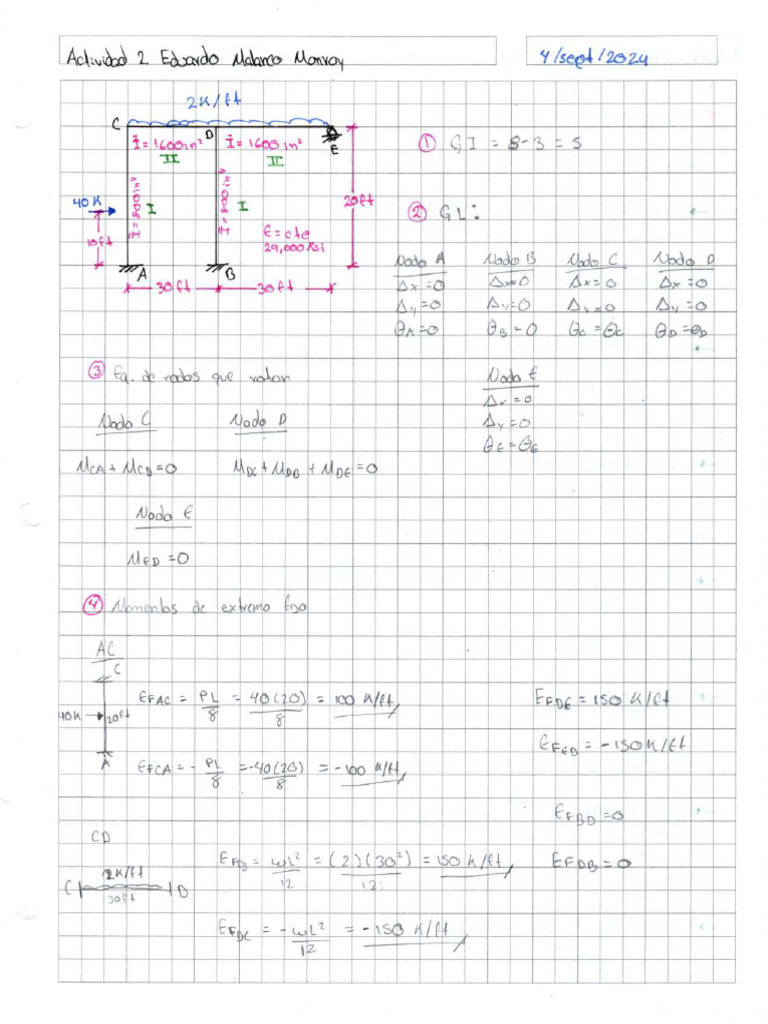 Actividad 2 Eduardo Malanco Monroy
4/sept/2024
2K/ft
C
D
E
I = 1600in²
I = 1600in²
II
II
40K
I = 800in⁴
I
I = 800in⁴
I
20ft
10ft
E = cte
29,000Ksi
A
B
30ft
30ft
① GI = 8-3 = 5
② GL:
Nodo A Nodo B Nodo C Nodo D
Δx=0 Δx=0 Δx=0 Δx=0
Δy=0 Δy=0 Δy=0 Δy=0
θA=0 θB=0 θC=θC θD=θD
③ Eq. de nodos que rotan
Nodo E
Δx=0
Δy=0
θE=θE
Nodo C Nodo D
MCA + MCD=0 MDC+MDB+MDE=0
Nodo E
MED=0
④ Momentos de extremo fijo
AC
C
40K
20ft
A
EFAC = PL/8 = 40(20)/8 = 100 K/ft,
EFCA = -PL/8 = -40(20)/8 = -100 K/ft,
EFDE = 150 K/ft
EFED = -150K/ft
EFBD = 0
EFDB = 0
CD
2K/ft
C D
30ft
EFCD = ωL²/12 = (2)(30²)/12 = 150 K/ft,
EFDC = -ωL²/12 = -150 K/ft,